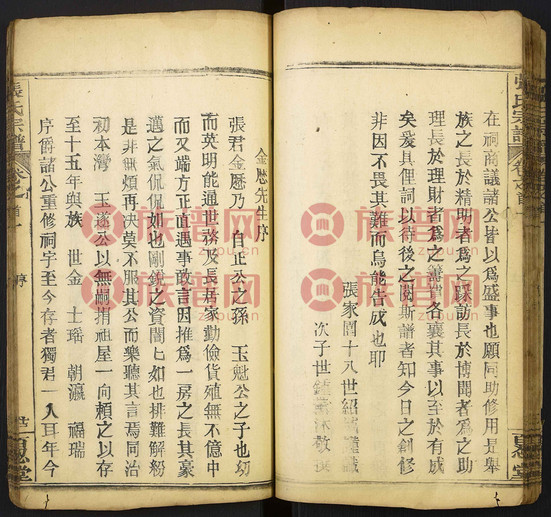 在祠商議諸公皆以為盛事也願同助修用是舉
族之長於精明者為之謀訪長於博聞者為之助
理長於理財者為之善其各襄其事以至於有成
矣爰具俚詞以待後之閱斯譜者知今日之創修
非因不畏其難而烏能告成也耶
張家閏十八世紹
次子世鐘沐敬撰
張氏宗譜
卷之首
金歷先生序
張君金歷乃 自正公之孫 玉魁公之子也幼
而英明能通世務及長居家勤儉貨殖無不億中
而又端方正直遇事敢言因推為一房之長其豪
邁之氣侃侃如也剛毅之資誾誾如也排難解紛
是非無煩再決莫不服其公而樂聽其言焉同治
初本灣 玉遂公以無嗣捐祖屋一向賴之以存
至十五年與族 世金 士瑶 朝瀛 福瑞
序爵諸公重修祠宇至今存者獨君一人耳年今
張氏宗譜
卷之首
序
堂
族譜网
zupu.cn